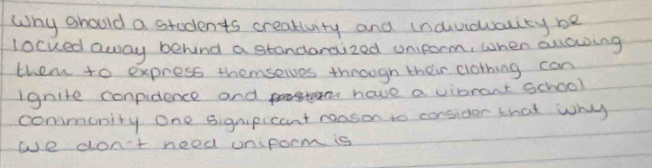 Why should a students creativity and individuality be
locked away behind a standardized uniform, when allowing
them to express themselves through their clothing can
ignite confidence and have a vibrant school
community one significant reason to consider that why
we don't need uniform is